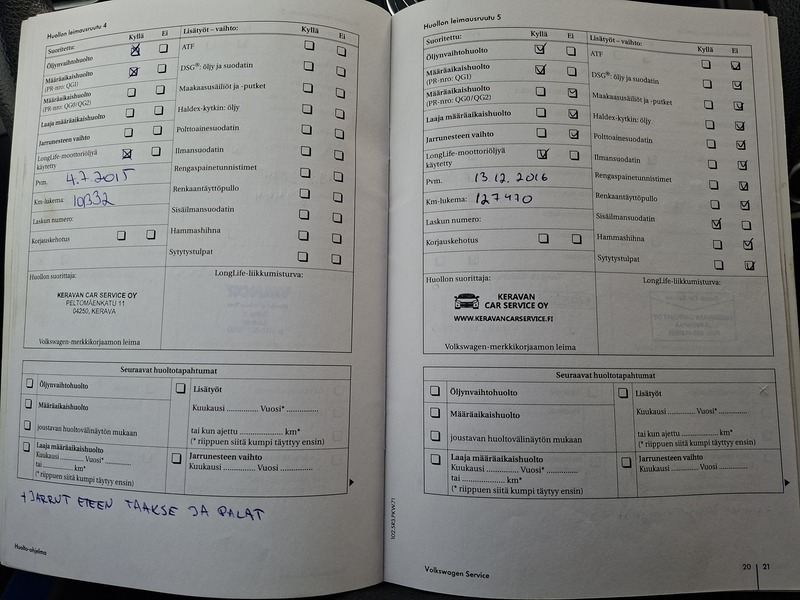 Huollon leimausruutu 4
Suoritettu: Kyllä Ei
Öljynvaihtohuolto
Määräaikaishuolto
(PR-nro: QG1)
Määräaikaishuolto
(PR-nro: QG0/QG2)
Laaja määräaikaishuolto
Jarrunesteen vaihto
LongLife-moottoriöljyä
käytetty
Pvm. 4.7.2015
Km-lukema:
Laskun numero:
Korjauskehotus
Lisätyöt – vaihto: Kyllä Ei
ATF
DSG®: öljy ja suodatin
Maakaasusäiliöt ja -putket
Haldex-kytkin: öljy
Polttoainesuodatin
Ilmansuodatin
Rengaspainetunnistimet
Renkaantäyttöpullo
Sisäilmansuodatin
Hammashihna
Sytytystulpat
Huollon suorittaja:
KERAVAN CAR SERVICE OY
PELTOMÄENKATU 11
04250, KERAVA
Volkswagen-merkkikorjaamon leima
LongLife-liikkumisturva:
Seuraavat huoltotapahtumat
Öljynvaihtohuolto
Määräaikaishuolto
joustavan huoltovälinäytön mukaan
Laaja määräaikaishuolto
Kuukausi .............. Vuosi* ..............
tai ........................ km*
(* riippuen siitä kumpi täyttyy ensin)
Lisätyöt
Kuukausi .............. Vuosi* ..............
tai kun ajettu ...................... km*
(* riippuen siitä kumpi täyttyy ensin)
Jarrunesteen vaihto
Kuukausi .............. Vuosi ..............
+ JARRUT ETEEN TAAKSE JA PALAT
Huolto-ohjelma
Huollon leimausruutu 5
Suoritettu: Kyllä Ei
Öljynvaihtohuolto
Määräaikaishuolto
(PR-nro: QG1)
Määräaikaishuolto
(PR-nro: QG0/QG2)
Laaja määräaikaishuolto
Jarrunesteen vaihto
LongLife-moottoriöljyä
käytetty
Pvm. 13.12.2016
Km-lukema: 127470
Laskun numero:
Korjauskehotus
Lisätyöt – vaihto: Kyllä Ei
ATF
DSG®: öljy ja suodatin
Maakaasusäiliöt ja -putket
Haldex-kytkin: öljy
Polttoainesuodatin
Ilmansuodatin
Rengaspainetunnistimet
Renkaantäyttöpullo
Sisäilmansuodatin
Hammashihna
Sytytystulpat
Huollon suorittaja:
KERAVAN
CAR SERVICE OY
WWW.KERAVANCARSERVICE.FI
Volkswagen-merkkikorjaamon leima
LongLife-liikkumisturva:
Seuraavat huoltotapahtumat
Öljynvaihtohuolto
Määräaikaishuolto
joustavan huoltovälinäytön mukaan
Laaja määräaikaishuolto
Kuukausi .............. Vuosi* ..............
tai ........................ km*
(* riippuen siitä kumpi täyttyy ensin)
Lisätyöt
Kuukausi .............. Vuosi* ..............
tai kun ajettu ...................... km*
(* riippuen siitä kumpi täyttyy ensin)
Jarrunesteen vaihto
Kuukausi .............. Vuosi ..............
Volkswagen Service
20 21